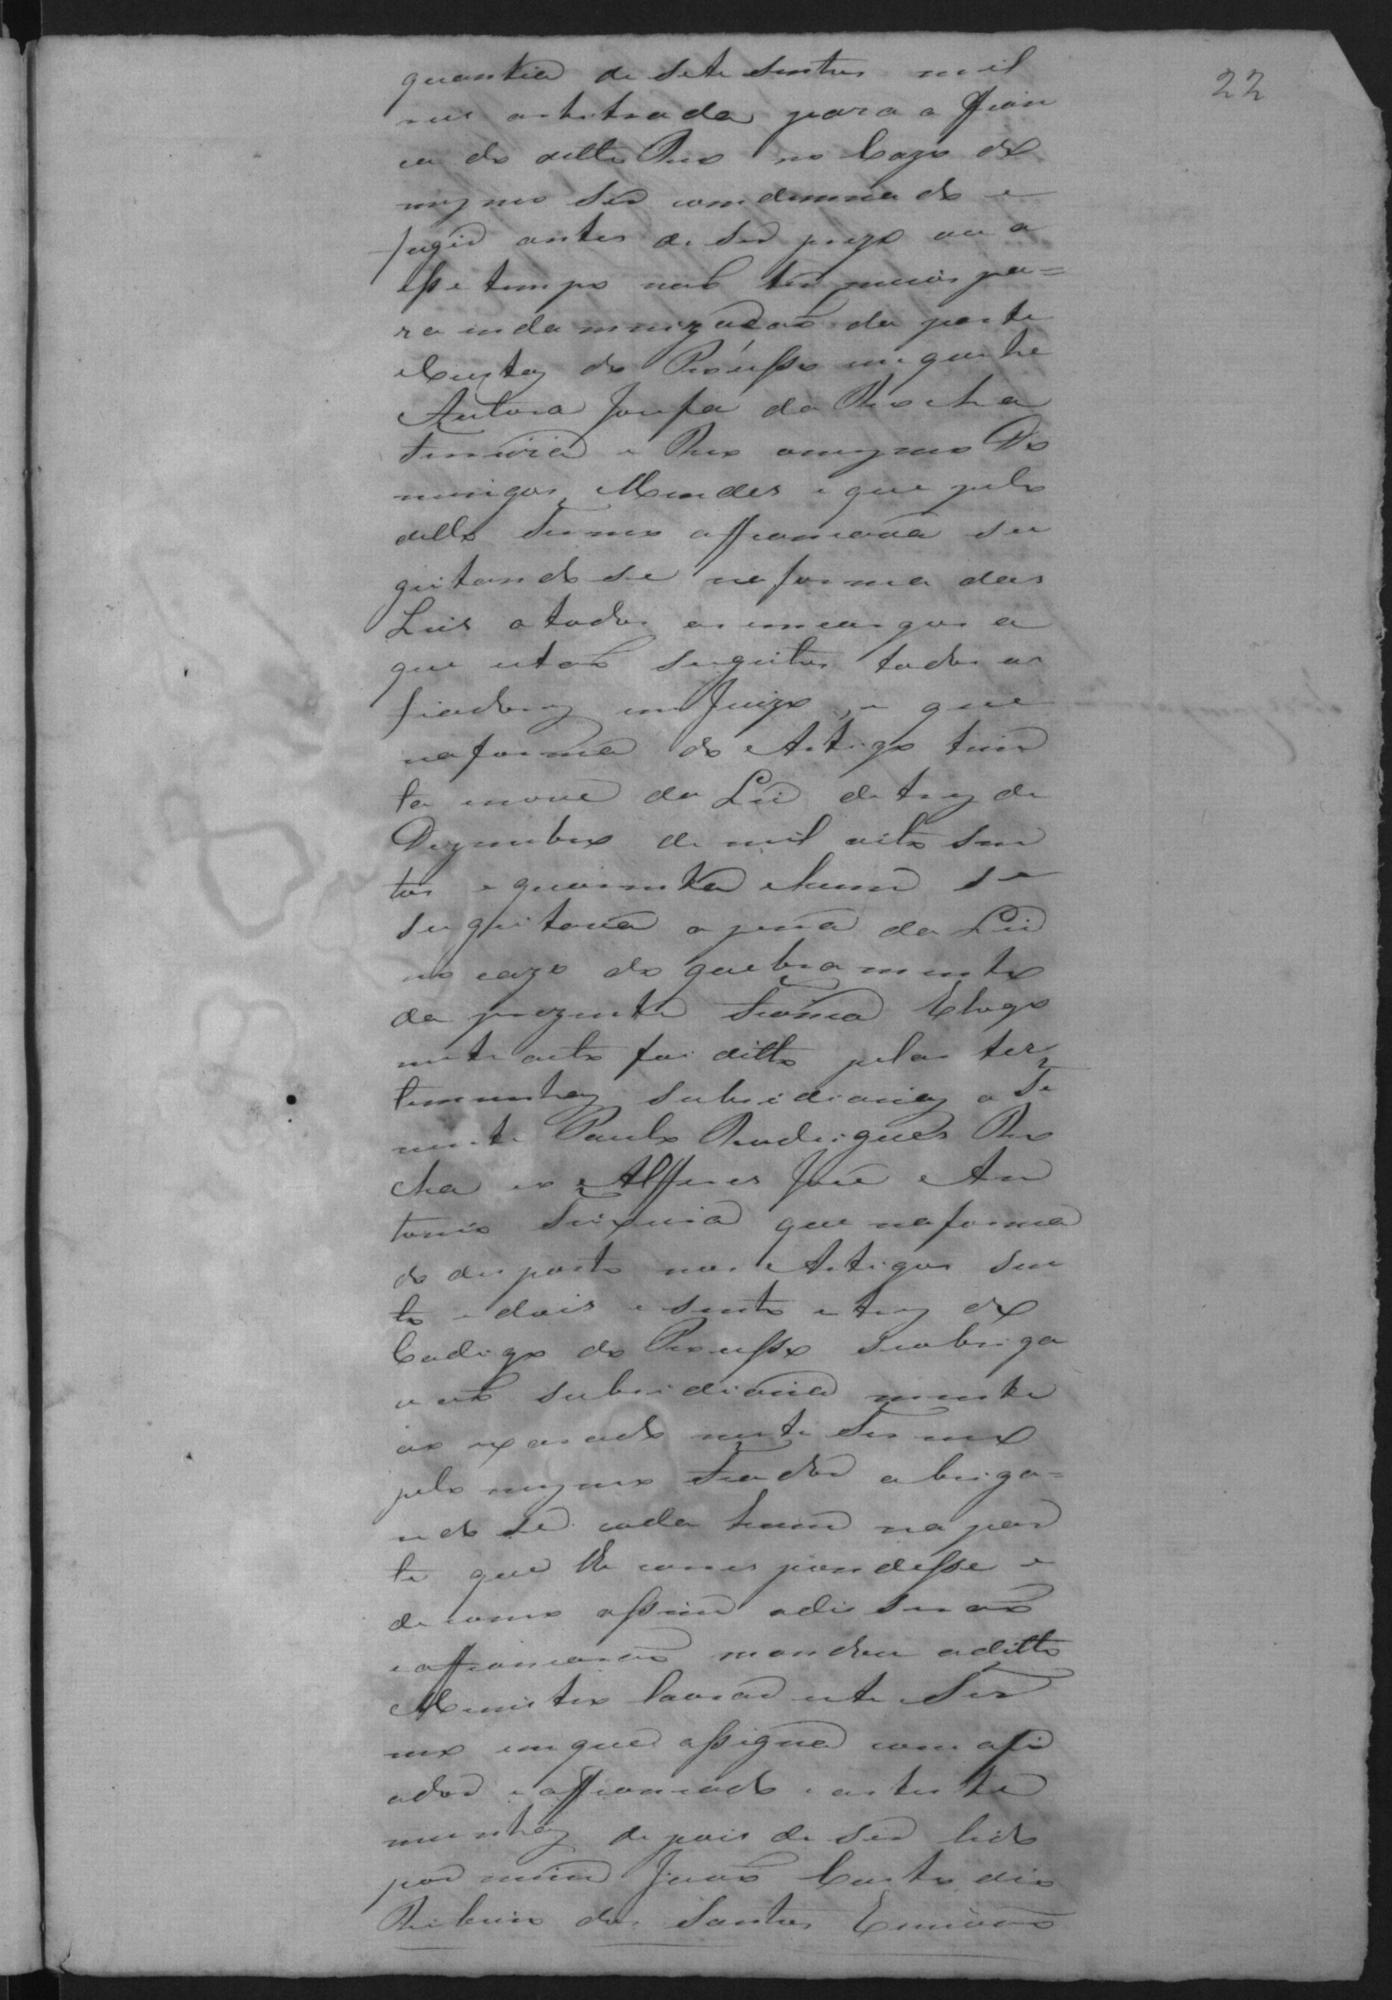 22
quantia de sete sentos mil
reis arbitrada para a fian
ca do ditto Reo no Cazo do
mesmo ser comdemnado e
fugir antes de ser prezo ou a
esse tempo não ter meios pa=
ra indamnização da parte
e Custas do Prosesso em que he
Autora Josefa da Rocha
Ferreira e Reo o mesmo Do
mingos Mendes e que pelo
dito Termo affiançava su
geitando se na forma das
Leis a todos os emcargos a
que estão sugeitos todos os
fiadores em Juizo, e que
na forma do Artigo trin
ta e nove da Lei de tres de
Dezembro de mil oito sen
tos e quarenta e hum se
sugeitava a pena da Lei
no cazo do quebramento
da prezente Fiança E logo
neste acto foi ditto pelas tes
temunhas subsidiarias o Te
nente Paulo Rodrigues Ro
cha e o Alfferes José An
tonio Teixeira que na forma
do disposto nos Artigos sen
to e dois e sento e tres do
Codigo do Prosesso se obriga
vão subsidiaria mente
ao exarado neste Termo
pelo mesmo Fiador obriga=
ndo se cada hum na par
te que lhe corres pondesse e
de como assim o disserão
e affiançarão mandou o ditto
Menistro lavrar este Ter
mo em que assigna com o fi
ador e affiançado e as teste
munhas depois de ser lido
por mim João Custodio
Ribeiro dos Santos Escrivão